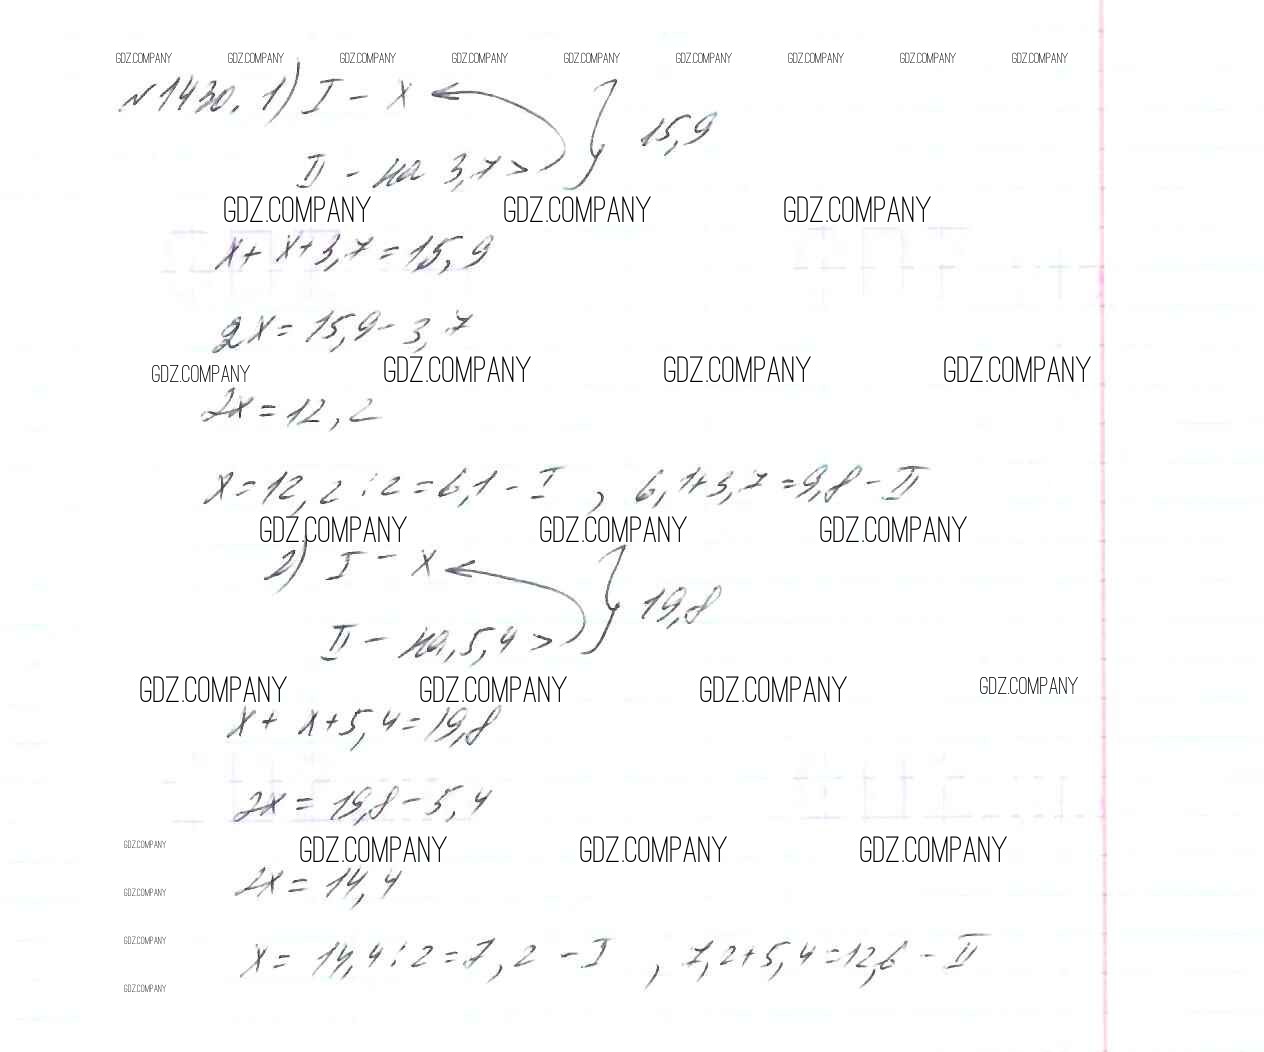 GDZ.COMPANY GDZ.COMPANY GDZ.COMPANY GDZ.COMPANY GDZ.COMPANY GDZ.COMPANY GDZ.COMPANY GDZ.COMPANY GDZ.COMPANY
№1430. 1) I – x
15,9
II – на 3,7 >
GDZ.COMPANY GDZ.COMPANY GDZ.COMPANY
x + x + 3,7 = 15,9
2x = 15,9 – 3,7
GDZ.COMPANY GDZ.COMPANY GDZ.COMPANY GDZ.COMPANY
2x = 12,2
x = 12,2 : 2 = 6,1 – I , 6,1 + 3,7 = 9,8 – II
GDZ.COMPANY GDZ.COMPANY GDZ.COMPANY
2) I – x
19,8
II – на 5,4 >
GDZ.COMPANY GDZ.COMPANY GDZ.COMPANY GDZ.COMPANY
x + x + 5,4 = 19,8
2x = 19,8 – 5,4
GDZ.COMPANY GDZ.COMPANY GDZ.COMPANY GDZ.COMPANY
2x = 14,4
GDZ.COMPANY
GDZ.COMPANY
x = 14,4 : 2 = 7,2 – I , 7,2 + 5,4 = 12,6 – II
GDZ.COMPANY